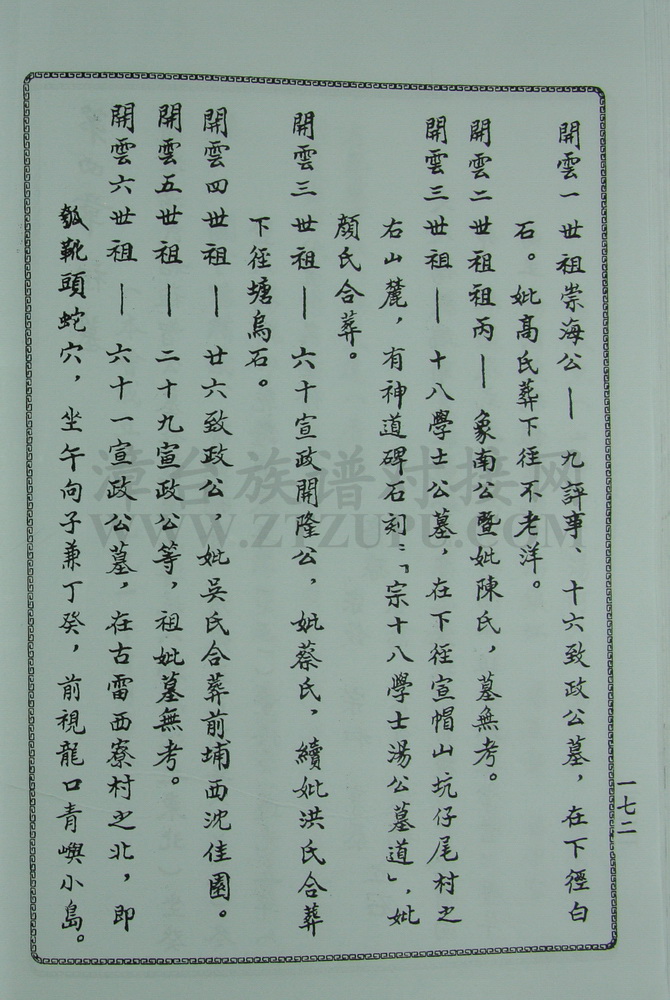 開雲一世祖崇海公——九評事、十六致政公墓，在下徑白
石。妣高氏葬下徑不老洋。
開雲二世祖祖丙——象南公暨妣陳氏，墓無考。
開雲三世祖——十八學士公墓，在下徑宣帽山坑仔尾村之
右山麓，有神道碑石刻：「宗十八學士湯公墓道」，妣
顏氏合葬。
開雲三世祖——六十宣政開隆公，妣蔡氏，續妣洪氏合葬
下徑塘烏石。
開雲四世祖——廿六致政公，妣吳氏合葬前埔西沈佳園。
開雲五世祖——二十九宣政公等，祖妣墓無考。
開雲六世祖——六十一宣政公墓，在古雷西寮村之北，即
靴頭蛇穴，坐午向子兼丁癸，前視龍口青嶼小島。
一七二
漳台族谱对接网
WWW.ZTZUPU.COM